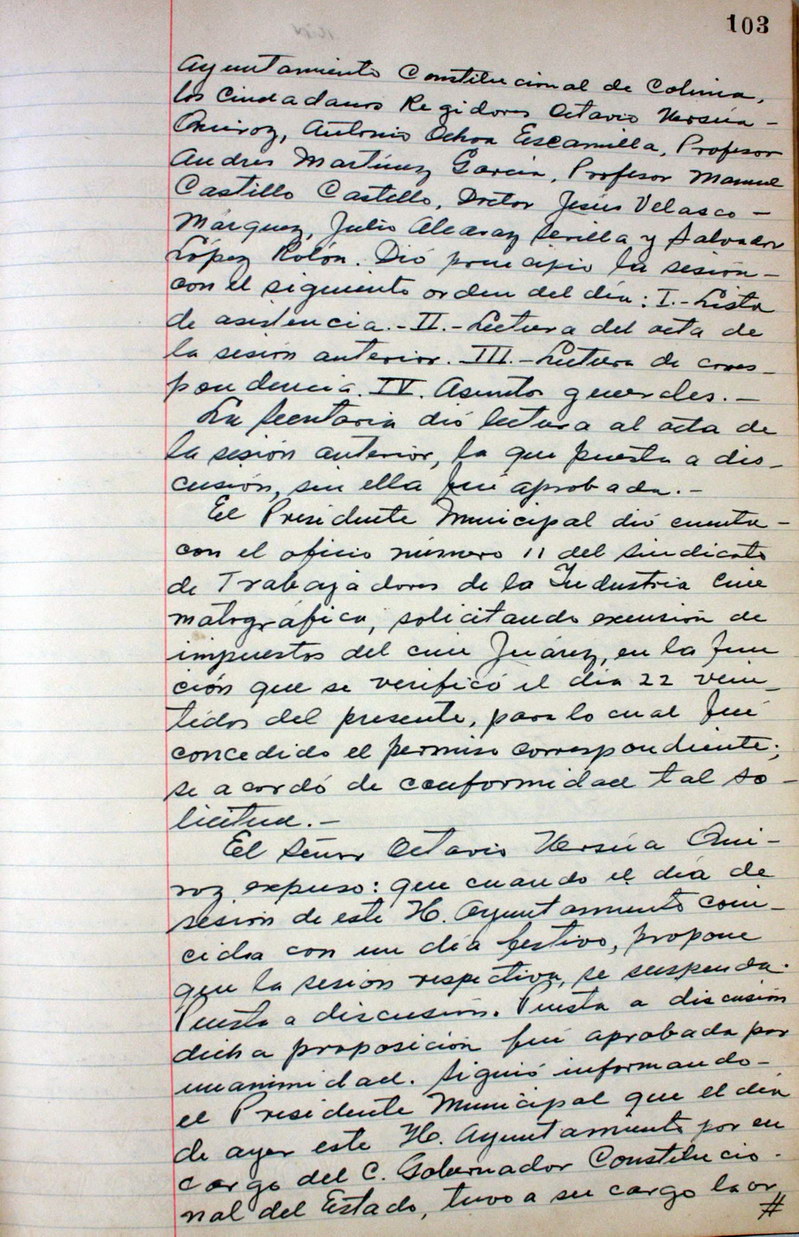 103
Ayuntamiento Constitucional de Colima,
los Ciudadanos Regidores Octavio Ursúa -
Quiroz, Antonio Ochoa Escamilla, Profesor
Andrés Martínez García, Profesor Manuel
Castillo Castello, Doctor Jesús Velasco -
Márquez, Julio Alcaraz Sevilla y Salvador
López Rolón. Dió principio la sesión -
con el siguiente orden del día: I.- Lista
de asistencia.- II.- Lectura del acta de
la sesión anterior. III.- Lectura de corres-
pondencia. IV. Asuntos generales. -
La Secretaria dió lectura al acta de
la sesión anterior, la que puesta a dis-
cusión, sin ella fué aprobada. -
El Presidente Municipal dió cuenta -
con el oficio número 11 del Sindicato
de Trabajadores de la Industria Cine
matográfica, solicitando exención de
impuestos del cine Juárez, en la fun
ción que se verificó el día 22 vein-
tidos del presente, para lo cual fué
concedido el permiso correspondiente;
se acordó de conformidad tal so -
licitud. -
El Señor Octavio Ursúa Qui-
roz expuso: que cuando el día de
sesión de este H. Ayuntamiento coin-
cida con un día festivo, propone
que la sesión respectiva, se suspenda.
Puesta a discusión. Puesta a discusión
dicha proposición fué aprobada por
unanimidad. Siguió informando -
el Presidente Municipal que el día
de ayer este H. Ayuntamiento por en
cargo del C. Gobernador Constitucio-
nal del Estado, tuvo a su cargo la or
#